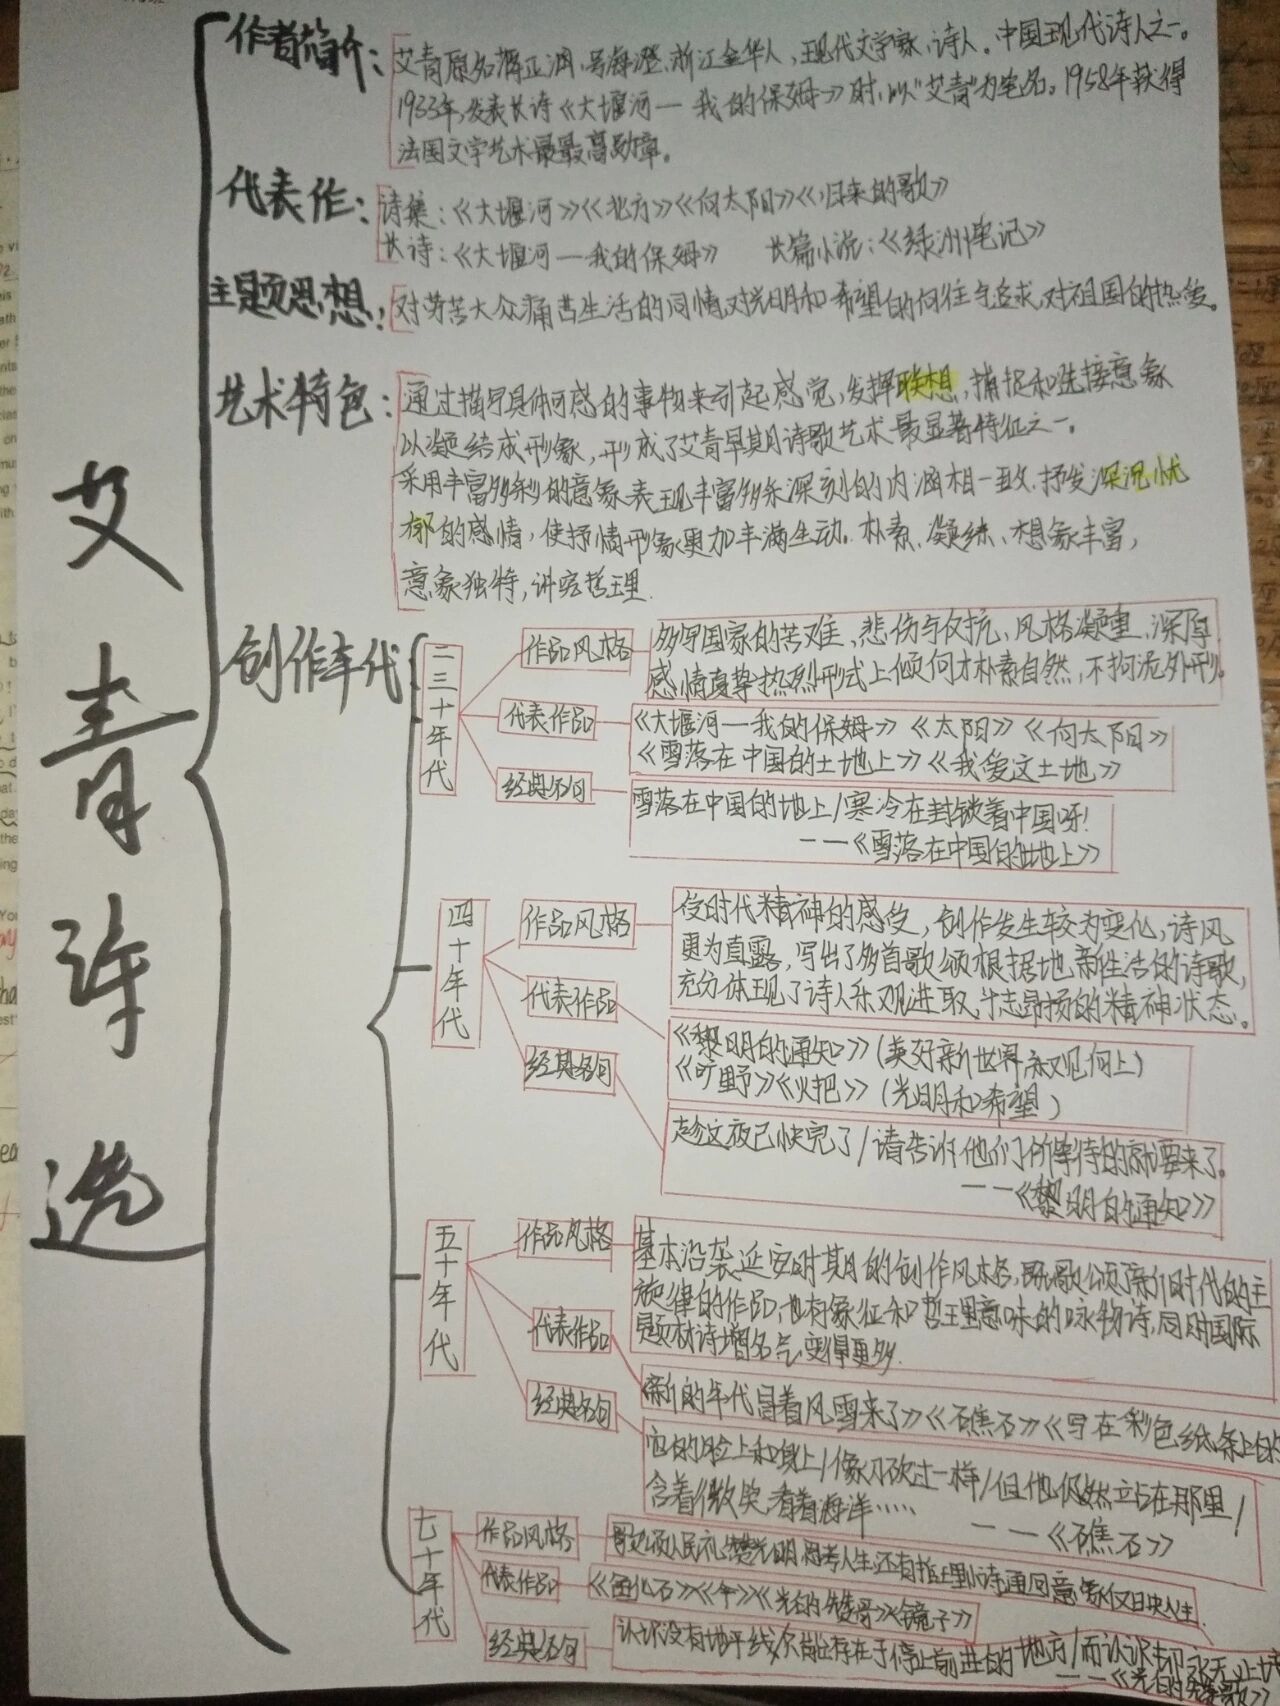 艾青诗选
作者简介：
艾青原名蒋正涵，号海澄，浙江金华人，现代文学家、诗人。中国现代诗人之一。
1933年，发表长诗《大堰河—我的保姆》时，以"艾青"为笔名。1958年获得
法国文学艺术最最高勋章。
代表作：
诗集：《大堰河》《北方》《向太阳》《归来的歌》
长诗：《大堰河—我的保姆》 长篇小说：《绿洲笔记》
主题思想：
对劳苦大众痛苦生活的同情，对光明和希望的向往与追求，对祖国的热爱。
艺术特色：
通过描写具体可感的事物来引起感觉，发挥联想，捕捉和选择意象
以凝结成形象，形成了艾青早期诗歌艺术最显著特征之一。
采用丰富多彩的意象表现丰富多条深刻的内涵相一致，抒发深沉忧
郁的感情，使抒情形象更加丰满生动。朴素、凝练、想象丰富，
意象独特，讲究哲理.
创作年代
二三十年代
作品风格
多写国家的苦难、悲伤与反抗、风格凝重、深厚
感情真挚热烈形式上倾向才朴素自然，不拘泥外形。
代表作品
《大堰河—我的保姆》《太阳》《向太阳》
《雪落在中国的土地上》《我爱这土地》
经典名句
雪落在中国的地上/寒冷在封锁着中国呀！
——《雪落在中国的地上》
四十年代
作品风格
受时代精神的感受，创作发生较为变化，诗风
更为直露，写出了多首歌颂根据地新生活的诗歌，
充分体现了诗人乐观进取，斗志昂扬的精神状态。
代表作品
《黎明的通知》（美好新世界，积极向上）
《旷野》《火把》（光明和希望）
经典名句
趁这夜已快完了/请告诉他们所等待的就要来了。
——《黎明的通知》
五十年代
作品风格
基本沿袭延安时期的创作风格，既歌颂新时代的主
旋律的作品，也有象征和哲理意味的咏物诗，同时国际
题材诗增名气变得更多.
代表作品
《新的年代冒着风雪来了》《礁石》《写在彩色纸条上的
经典名句
它的脸上和身上/像刀砍过一样/但他仍然站在那里/
含着微笑，看着海洋……
——《礁石》
七十年代
作品风格
歌颂人民礼赞光明，思考人生，还有哲理小诗通回意象反映人生.
代表作品
《鱼化石》《伞》《光的赞歌》《镜子》
经典名句
认识没有地平线/只能存在于停止前进的地方/而认识却永无止境
——《光的赞歌》